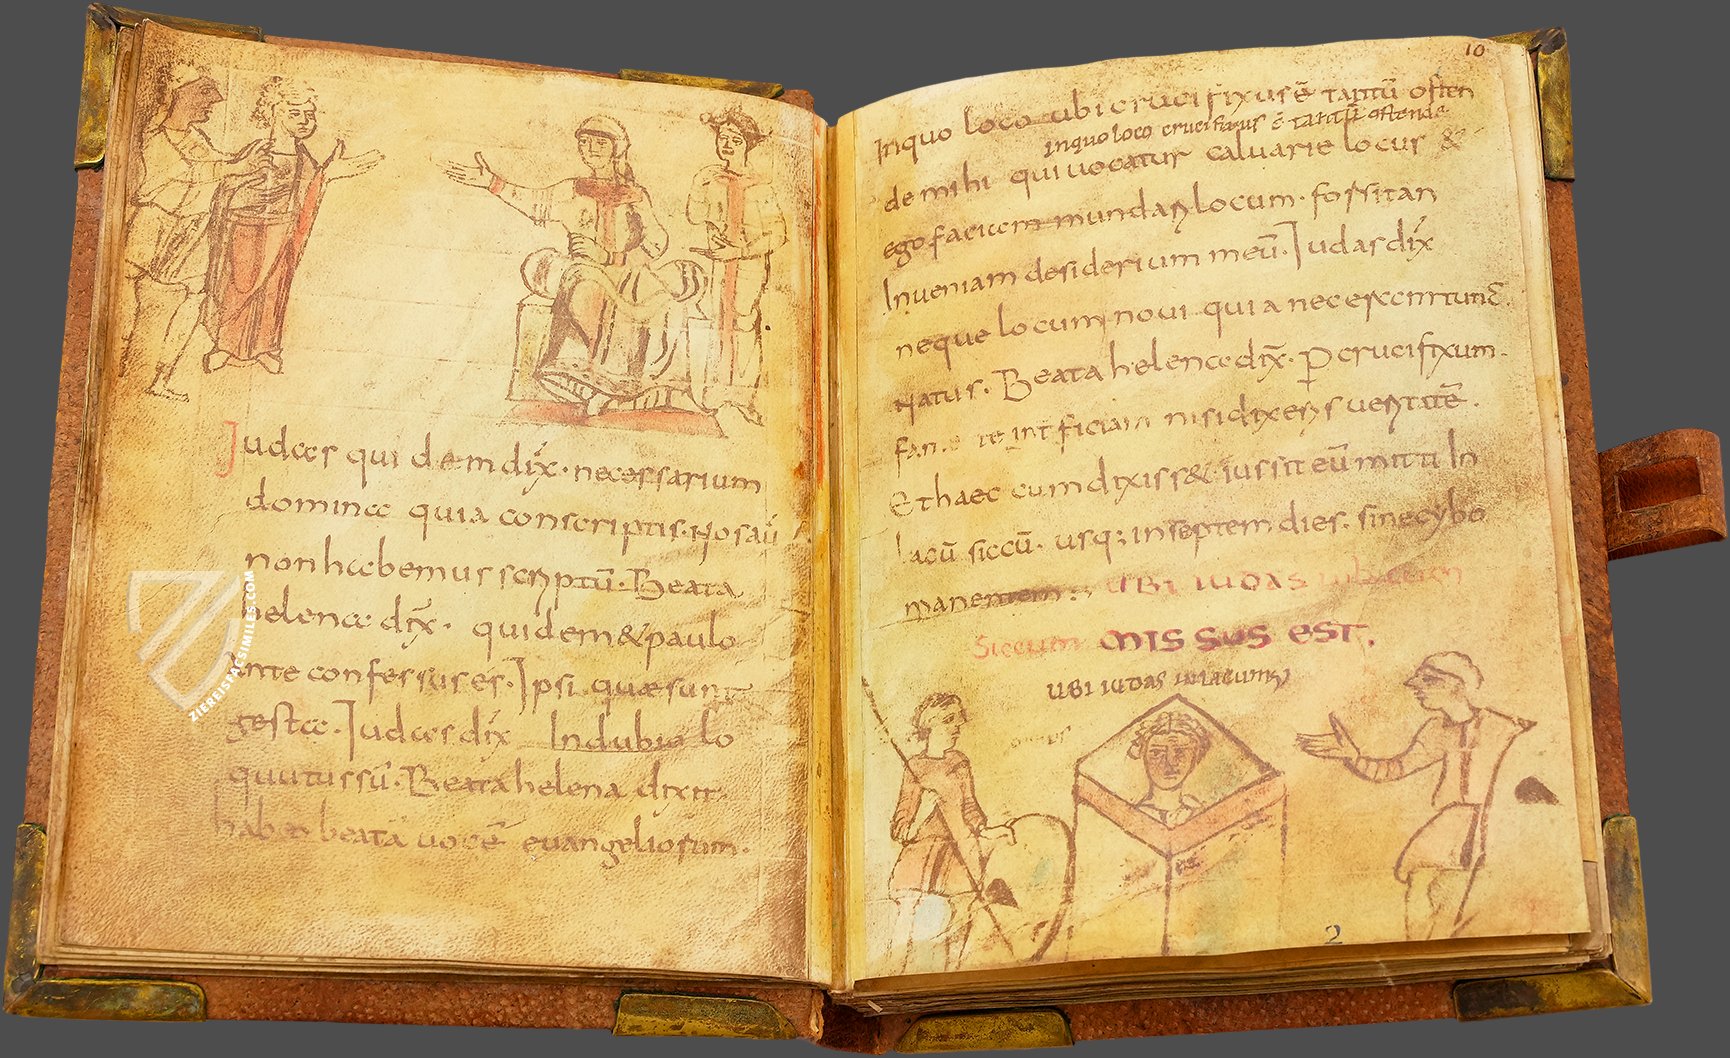 Judas quidem dix̄· necessarium
domine quia conscriptis. Nos aū
non habemus scriptū. Beata
helena dix̄· quidem & paulo
ante confessus es. Ipsi quae sunt
gestae. Judas dix̄ In dubio lo
quutus sū. Beata helena dixit.
habeo beatā vocē evangeliorum.
ZIEREISFACSIMILES.COM
10
Inquo loco ubi crucifixus ē tantū osten
inquo loco crucifixus ē tantū ostende
de mihi qui vocatur calvarie locus &
ego faciam mundari locum. forsitan
Inveniam desiderium meū. Judas dix̄
neque locum novi quia nec eram tunc
natus. Beata helena dix̄. P crucifixum.
te interficiam nisi dixeris veritatē.
Et haec cum dixiss& iussit eū mitti In
lacū siccū. usq; in septem dies. sine cybo
manentem: UBI IUDAS
siccum MISSUS EST.
UBI IUDAS IN LACUM
2